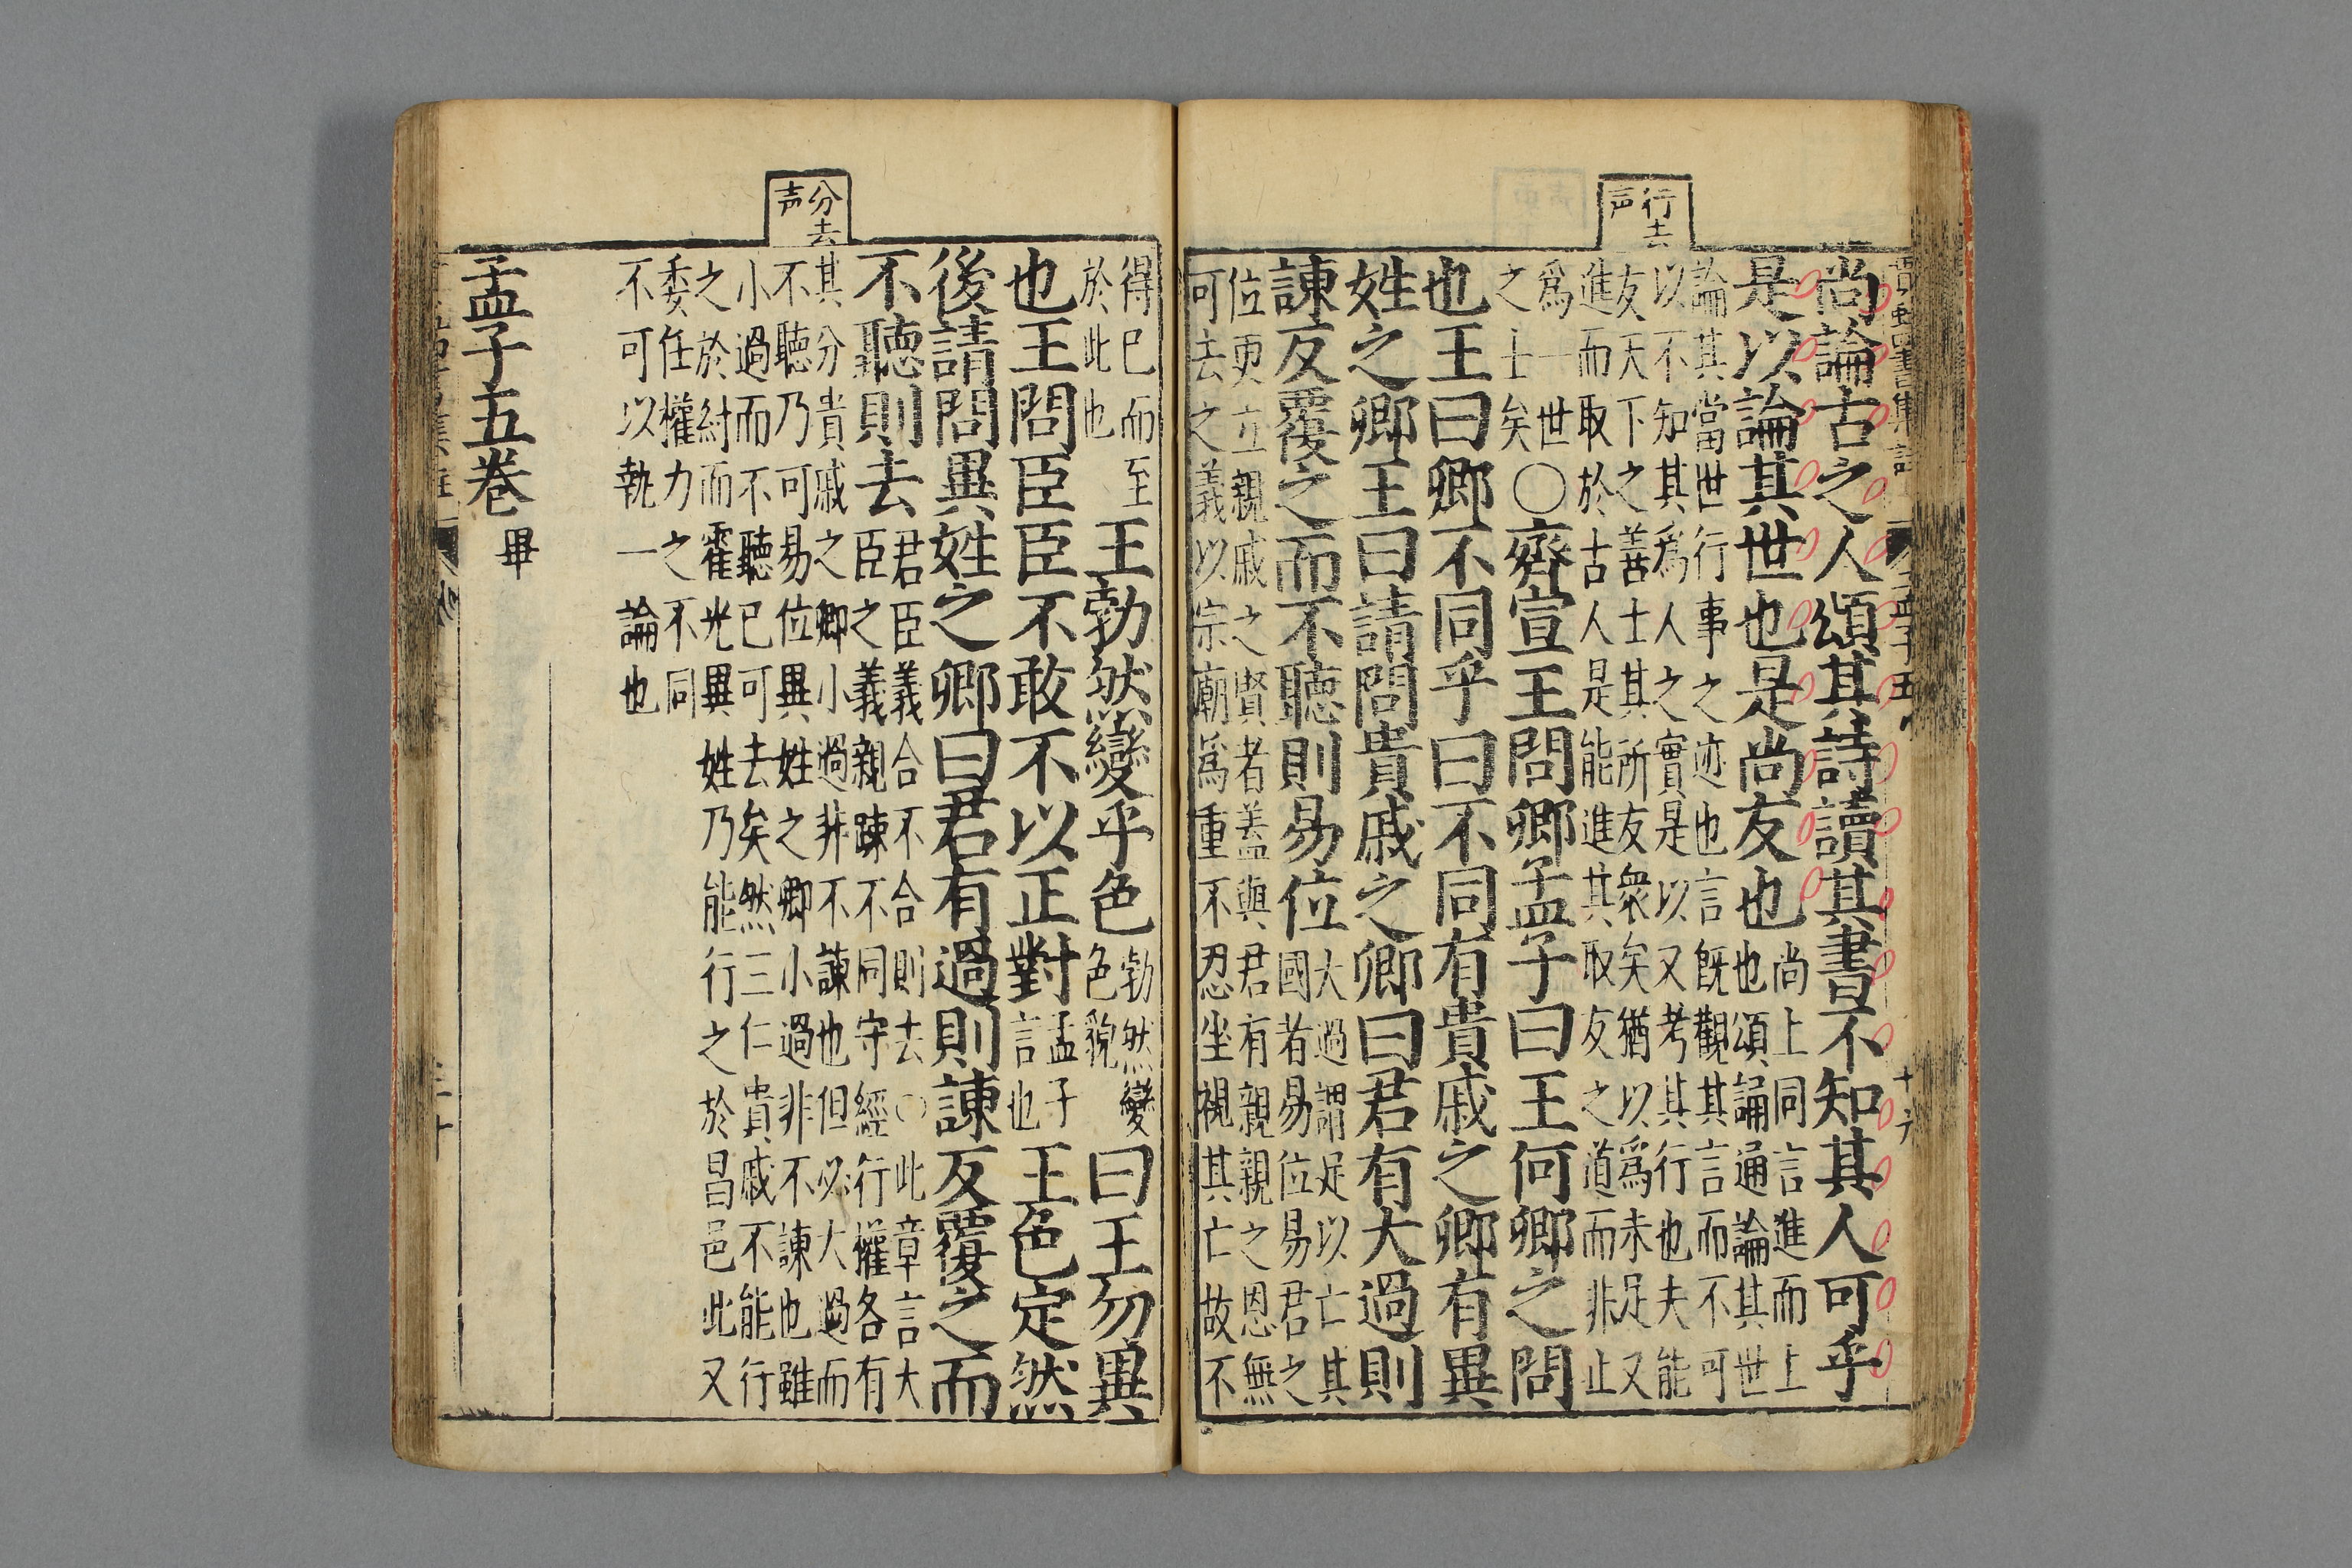 行去
声
尚論古之人頌其詩讀其書不知其人可乎
是以論其世也是尚友也
尚上同言進而上
也頌誦通論其世
論其當世行事之迹也言既觀其言而不可
以不知其為人之實是以又考其行也夫能
友天下之善士其所友衆矣猶以為未足又
進而取於古人是能進其取友之道而非止
為一世
之士矣
○齊宣王問卿孟子曰王何卿之問
也王曰卿不同乎曰不同有貴戚之卿有異
姓之卿王曰請問貴戚之卿曰君有大過則
諫反覆之而不聽則易位
大過謂足以亡其
國者易位易君之
位更立親戚之賢者盖與君有親親之恩無
可去之義以宗廟為重不忍坐視其亡故不
分去
声
得已而至
於此也
王勃然變乎色
勃然變
色貌
曰王勿異
也王問臣臣不敢不以正對
孟子
言也
王色定然
後請問異姓之卿曰君有過則諫反覆之而
不聽則去
君臣義合不合則去○此章言大
臣之義親踈不同守經行權各有
其分貴戚之卿小過非不諫也但必大過而
不聽乃可易位異姓之卿小過非不諫也雖
小過而不聽已可去矣然三仁貴戚不能行
之於紂而霍光異姓乃能行之於昌邑此又
委任權力之不同
不可以執一論也
孟子五卷畢